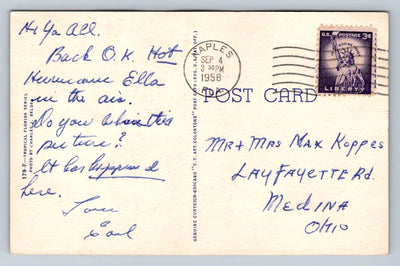 Hi Ya All.
Back O.K. Hot
Hurricane Ella
in the air.
Do you like this
picture?
It has happened
here.
Love
Earl
179-F—TROPICAL FLORIDA SERIES
PHOTO BY CHARLES C. BELDEN
GENUINE CURTEICH-CHICAGO "C.T. ART-COLORTONE" POST CARD (REG. U.S. PAT. OFF.)
NAPLES
SEP 4
3 PM
1958
FLA.
U.S. POSTAGE 3¢
LIBERTY
POST CARD
Mr + Mrs Max Koppes
LayFayette Rd.
Medina
Ohio